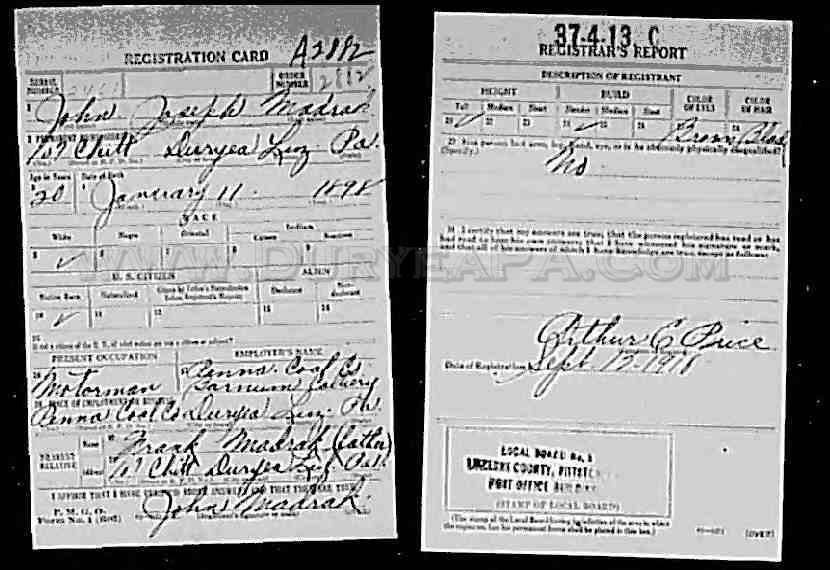 REGISTRATION CARD A2882
SERIAL NUMBER ORDER NUMBER 2882
1 John Joseph Madrak
2 PERMANENT HOME ADDRESS
Duryea Luz Pa.
Age in Years Date of Birth
20 January 11 1898
RACE
White Negro Oriental Indian
Citizen Noncitizen
5 ✓ 6 7 8 9
U. S. CITIZEN ALIEN
Native Born Naturalized Citizen by Father's Naturalization Before Registrant's Majority Declarant Non-declarant
10 ✓ 11 12 13 14
15
If not a citizen of the U. S., of what nation are you a citizen or subject?
PRESENT OCCUPATION EMPLOYER'S NAME
Motorman Penna Coal Co
Colliery
Penna Coal Co Duryea Luz. Pa.
NEAREST RELATIVE Name Frank Madrak
Address Duryea Luz Pa.
I AFFIRM THAT I HAVE VERIFIED ABOVE ANSWERS AND THAT THEY ARE TRUE
P. M. G. O.
Form No. 1 (Red) John Madrak
37-4-13 C
REGISTRAR'S REPORT
DESCRIPTION OF REGISTRANT
HEIGHT BUILD COLOR OF EYES COLOR OF HAIR
Tall Medium Short Slender Medium Stout
✓ 22 23 ✓ Brown
29 Has person lost arm, leg, hand, eye, or is he obviously physically disqualified?
(Specify.)
No.
30 I certify that my answers are true; that the person registered has read or has
had read to him his own answers; that I have witnessed his signature or mark,
and that all of his answers of which I have knowledge are true, except as follows:
WWW.DURYEAPA.COM
Arthur C Price
Date of Registration Sept 12-1918
LOCAL BOARD No. 
COUNTY,
POST OFFICE BUILDING
(STAMP OF LOCAL BOARD)
(The stamp of the Local Board having jurisdiction of the area in which
the registrant has his permanent home shall be placed in this box.)
(OVER)